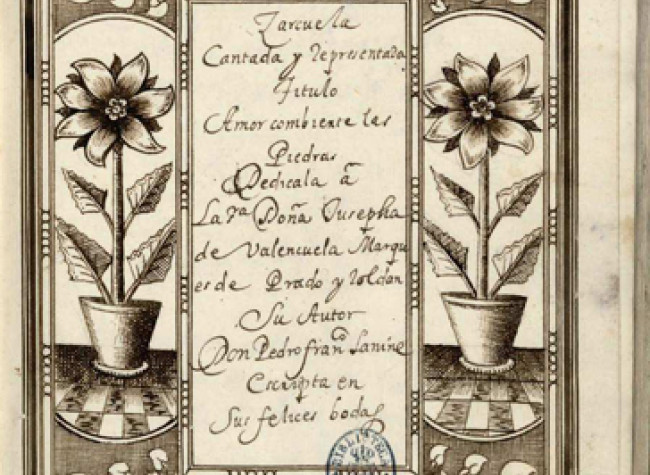 Zarcuela
Cantada y representada
Titulo
Amor combiente las
Piedras
Dedicala â
La s.ra Doña Jusepha
de Valencuela Marqu
es de Prado y Roldan
Su Autor
Don Pedro fran.co Lanine
Escripta en
Sus felices bodas
BIBLIOTECA